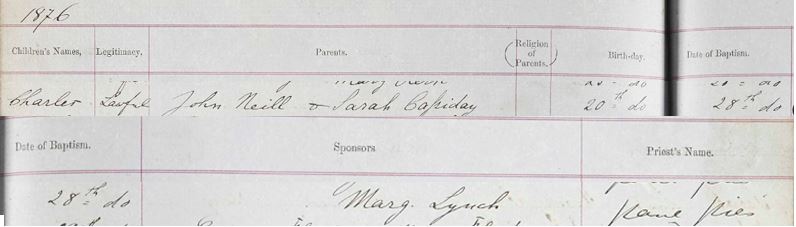 1876
Children's Names, Legitimacy, Parents. (Religion of Parents.) Birth-day. Date of Baptism.
do do
Charles Lawful John Neill & Sarah Cassiday 20th do 28th do
Date of Baptism. Sponsors Priest's Name.
28th do Marg. Lynch